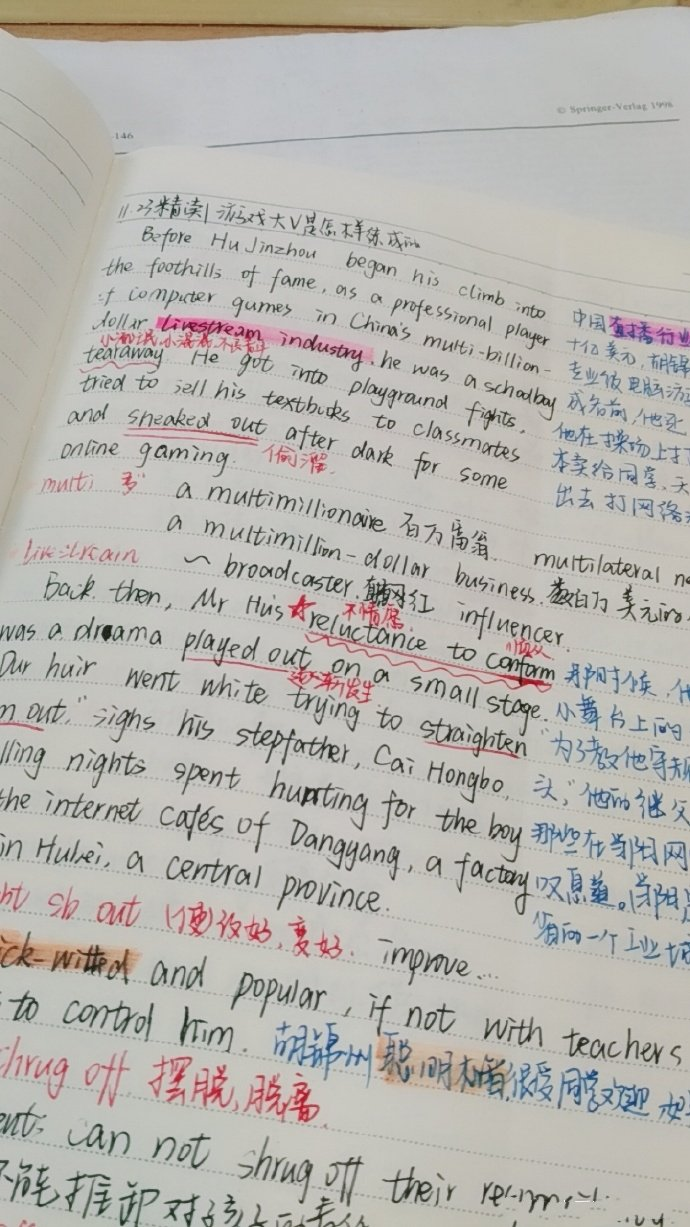 -146
© Springer-Verlag 1996
11.23精读|游戏大V是怎样练成的
Before Hu Jinzhou began his climb into
the foothills of fame, as a professional player
of computer gumes in China's multi-billion-
dollar livestream industry, he was a schoolboy
小流氓,小混混,不良青年
tearaway He got into playground fights,
tried to sell his textbooks to classmates
and sneaked out after dark for some
online gaming. 偷溜
中国直播行业
十亿美元,胡锦
专业级电脑游
成名前,他还
他在操场上打
本卖给同学,天
出去打网络
multi 多
a multimillionaire 百万富翁. multilateral
a multimillion-dollar business. 数百万美元的
livestream
~ broadcaster. 网红 influencer.
不情愿
顺从
Back then, Mr Hu's reluctance to conform
was a drama played out on a small stage.
逐渐发生
Our hair went white trying to straighten
m out," sighs his stepfather, Cai Hongbo,
lling nights spent hunting for the boy
the internet cafés of Dangyang, a factory
in Hubei, a central province.
那时候,他
小舞台上的
"为了教他守规
头,"他的继父
那些在当阳网
叹息道。当阳是
省的一个工业
ht sb out (使)改好,变好. improve...
ick-witted and popular, if not with teachers
to control him. 胡锦州聪明机智,很受同学欢迎
shrug off 摆脱,脱离
ents can not shrug off their
不能推卸对孩子的责任